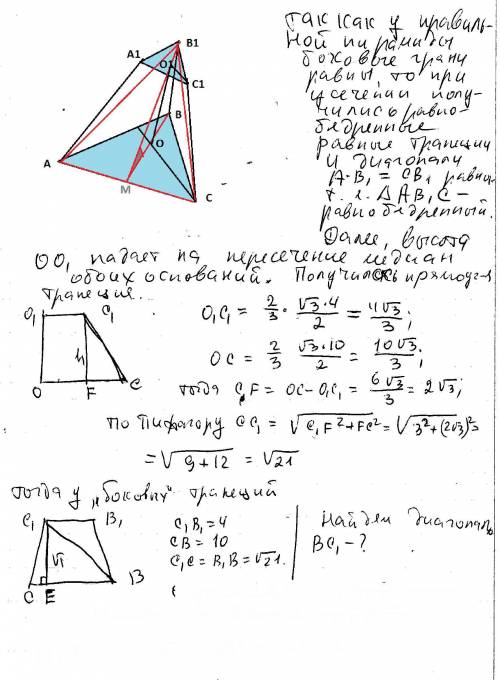 A1
B1
O1
C1
A
B
O
M
C
Так как у правиль-
ной пирамиды
боковые грани
равны, то при
усечении полу-
чились равно-
бедренные
равные трапеции
и диагонали
AB₁ = CB₁ равны
т.е. ΔAB₁C –
равнобедренный.
Далее, высота
OO₁ падает на пересечение медиан
обоих оснований. Получилась прямоуг-я
трапеция.
O₁
C₁
h
O
F
C
O₁C₁ = 2/3 · √3·4/2 = 4√3/3;
OC = 2/3 √3·10/2 = 10√3/3;
тогда C₁F = OC – O₁C₁ = 6√3/3 = 2√3;
по Пифагору CC₁ = √C₁F²+FC² = √3²+(2√3)² =
= √9+12 = √21
Тогда у „боковых" трапеций
C₁
B₁
C
E
B
C₁B₁ = 4
CB = 10
C₁C = B₁B = √21.
Найдем диагональ
BC₁ – ?